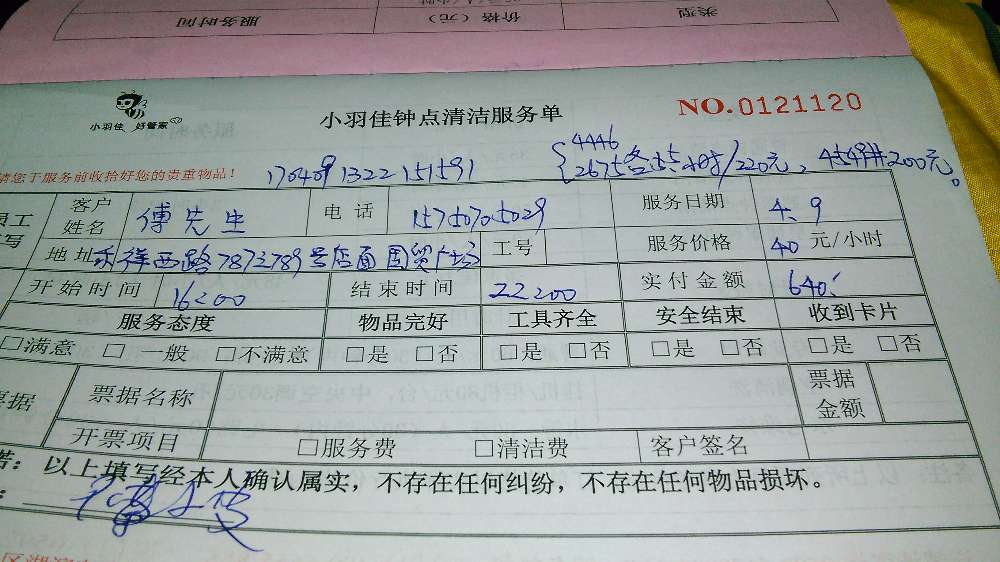 类型 价格（元） 服务时间
小羽佳 好管家
小羽佳钟点清洁服务单
NO.0121120
请您于服务前收拾好您的贵重物品！
170409132215 1591
4446
2675各5.5小时/220元，4549#200元。
员工
填写
客户姓名 傅先生 电话 15750705029 服务日期 4、9
西路787之789号店面国贸广场 工号 服务价格 40 元/小时
开始时间 16:00 结束时间 22:00 实付金额 640
服务态度 物品完好 工具齐全 安全结束 收到卡片
□满意 □一般 □不满意 □是 □否 □是 □否 □是 □否 □是 □否
票据
票据名称 票据金额
开票项目 □服务费 □清洁费 客户签名
以上填写经本人确认属实，不存在任何纠纷，不存在任何物品损坏。